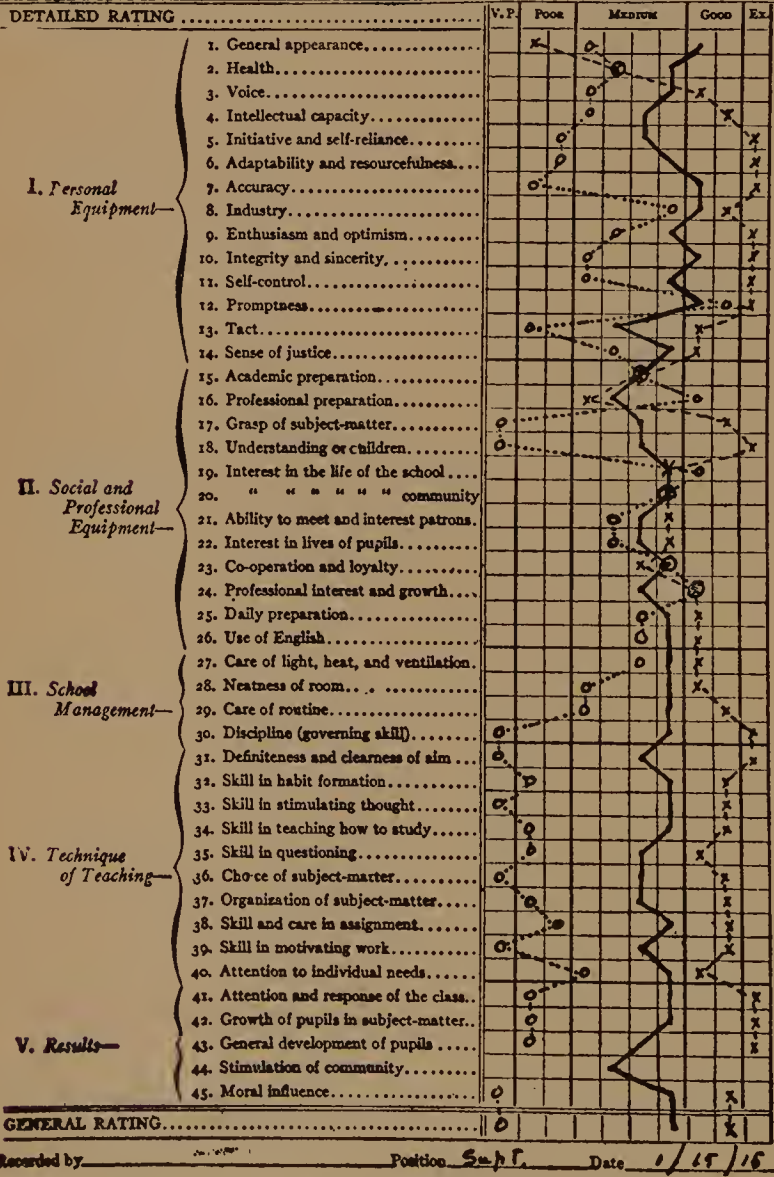 DETAILED RATING V. P. POOR MEDIUM GOOD EX.
I. Personal Equipment—
1. General appearance
2. Health
3. Voice
4. Intellectual capacity
5. Initiative and self-reliance
6. Adaptability and resourcefulness
7. Accuracy
8. Industry
9. Enthusiasm and optimism
10. Integrity and sincerity
11. Self-control
12. Promptness
13. Tact
14. Sense of justice
II. Social and Professional Equipment—
15. Academic preparation
16. Professional preparation
17. Grasp of subject-matter
18. Understanding or children
19. Interest in the life of the school
20. " " " " " " community
21. Ability to meet and interest patrons.
22. Interest in lives of pupils
23. Co-operation and loyalty
24. Professional interest and growth
25. Daily preparation
26. Use of English
III. School Management—
27. Care of light, heat, and ventilation.
28. Neatness of room
29. Care of routine
30. Discipline (governing skill)
IV. Technique of Teaching—
31. Definiteness and clearness of aim
32. Skill in habit formation
33. Skill in stimulating thought
34. Skill in teaching how to study
35. Skill in questioning
36. Cho ce of subject-matter
37. Organization of subject-matter
38. Skill and care in assignment
39. Skill in motivating work
40. Attention to individual needs
V. Results—
41. Attention and response of the class
42. Growth of pupils in subject-matter
43. General development of pupils
44. Stimulation of community
45. Moral influence
GENERAL RATING
Recorded by Position Supt. Date 1/15/15